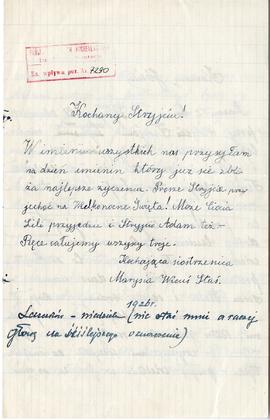 Ks. wpływu poz. Nr. 7290
Kochany Stryjciu!
W imieniu wszystkich nas przysyłam
na dzień imienin który już się zbli-
ża najlepsze życzenia. Proszę Stryjcia przy
jechać na Wielkanocne Święta! Może Ciocia
Lili przyjedzie i Stryjcio Adam też.
Ręce całujemy wszyscy troje.
Kochająca siostrzenica
Marysia Wicuś Staś.
1926r.
niedziela (nie stać mnie a raczej
głowę na ściślejsze oznaczenie)